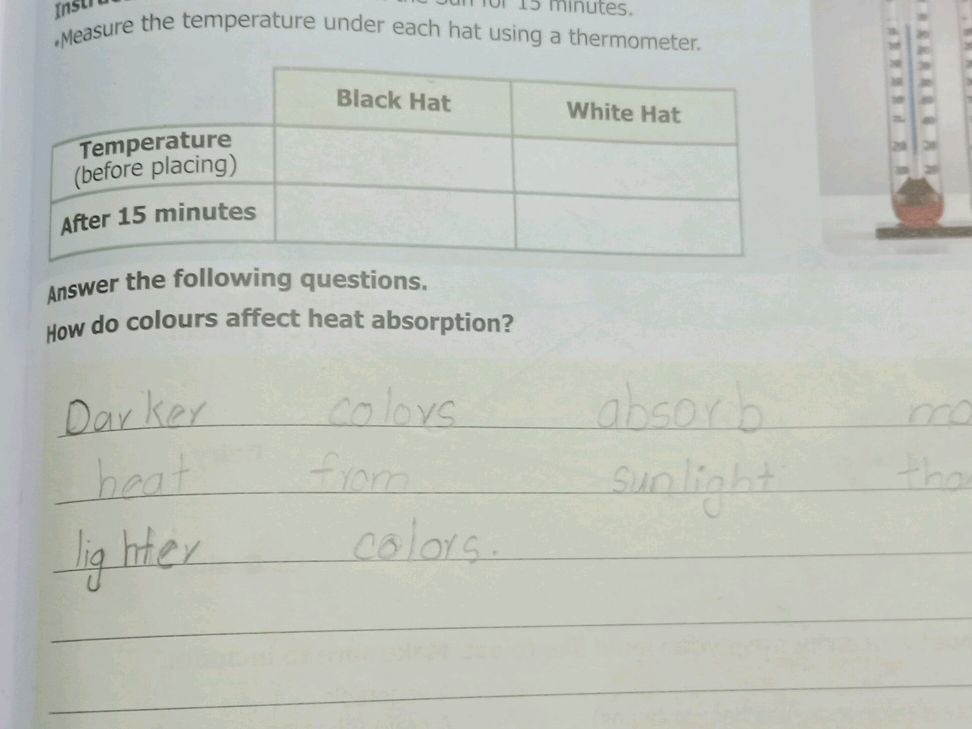 the sun for 15 minutes.
•Measure the temperature under each hat using a thermometer.
Black Hat White Hat
Temperature
(before placing)
After 15 minutes
Answer the following questions.
How do colours affect heat absorption?
Darker colors absorb
heat from sunlight
lighter colors.